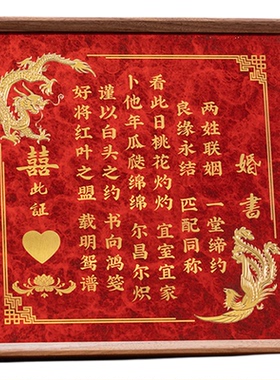 婚書
两姓联姻 一堂缔约
良缘永结 匹配同称
看此日桃花灼灼 宜室宜家
卜他年瓜瓞绵绵 尔昌尔炽
谨以白头之约 书向鸿笺
好将红叶之盟 载明鸳谱
囍
此証